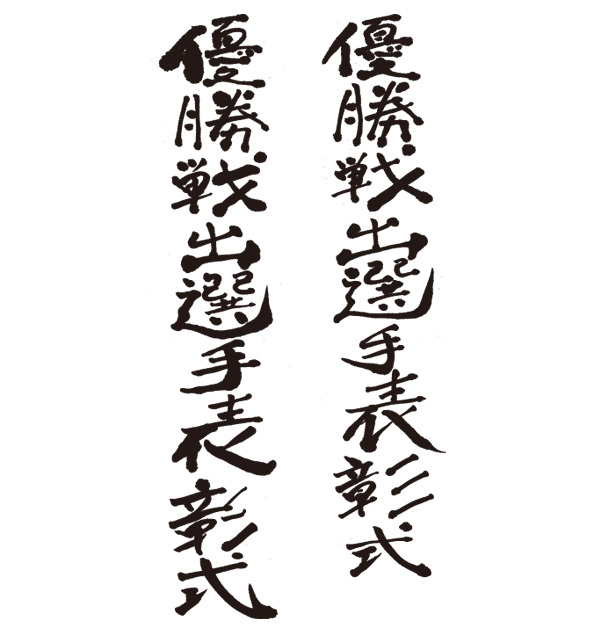 優勝戦出選手表彰式
優勝戦出選手表彰式